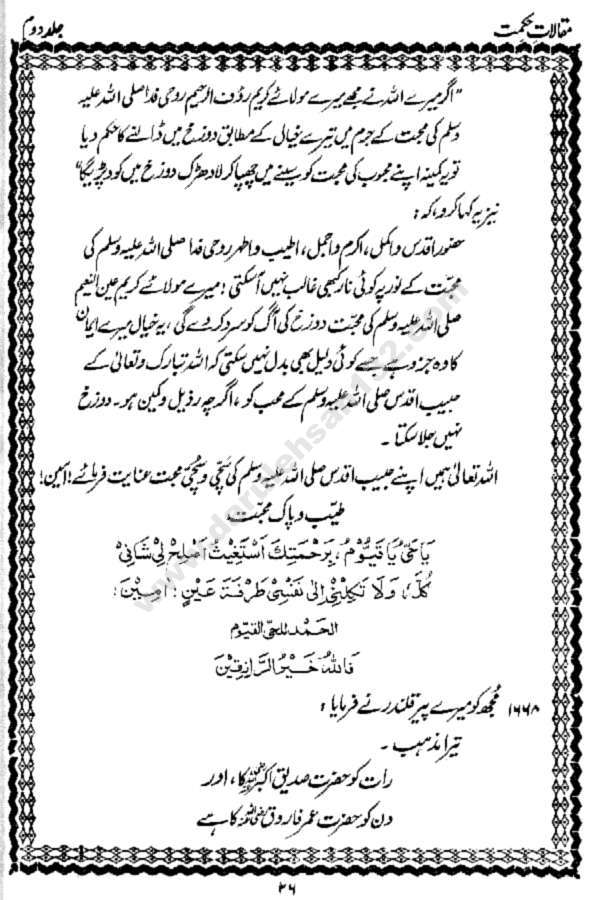 مقالاتِ حکمت
جلد دوم
"اگر میرے اللہ نے مجھے میرے مولائے کریم رؤف الرحیم روحی فدا صلی اللہ علیہ
وسلم کی محبت کے جرم میں تیرے خیالی کے مطابق دوزخ میں ڈالنے کا حکم دیا
تو یہ کمینہ اپنے محبوب کی محبت کو سینے میں چھپا کر لادھڑک دوزخ میں کود پڑیگا"
نیز یہ کہا کرو، کہ :
حضور اقدس و اکمل ، اکرم و اجمل ، اطیب و اطہر روحی فدا صلی اللہ علیہ وسلم کی
محبت کے نور پہ کوئی نار کبھی غالب نہیں آسکتی ! میرے مولائے کریم عین النعیم
صلی اللہ علیہ وسلم کی محبت دوزخ کی آگ کو سرد کر دے گی ، یہ خیال میرے ایمان
کا وہ جزو ہے جسے کوئی دلیل بھی بدل نہیں سکتی کہ اللہ تبارک و تعالیٰ کے
حبیب اقدس صلی اللہ علیہ وسلم کے محب کو ، اگرچہ رذیل و کمین ہو ۔ دوزخ
نہیں جلا سکتا ۔
اللہ تعالیٰ ہمیں اپنے حبیب اقدس صلی اللہ علیہ وسلم کی سچی و سُچی محبت عنایت فرمائے ! آمین !
طیب و پاک محبت
يَا حَيُّ يَا قَيُّوْمُ ، بِرَحْمَتِكَ اَسْتَغِيْثُ اَصْلِحْ لِيْ شَانِيْ
كُلَّهٗ ، وَلَا تَكِلْنِيْ اِلٰى نَفْسِيْ طَرْفَةَ عَيْنٍ : اٰمِيْنَ :
الحمد للحی القیوم
فَاللّٰهُ خَيْرُ الرَّازِقِيْنَ
۱۶۶۸ مجھ کو میرے پیر قلندر نے فرمایا :
تیرا مذہب ۔
رات کو حضرت صدیق اکبرؓ کا ، اور
دن کو حضرت عمر فاروقؓ کا ہے
۲۶